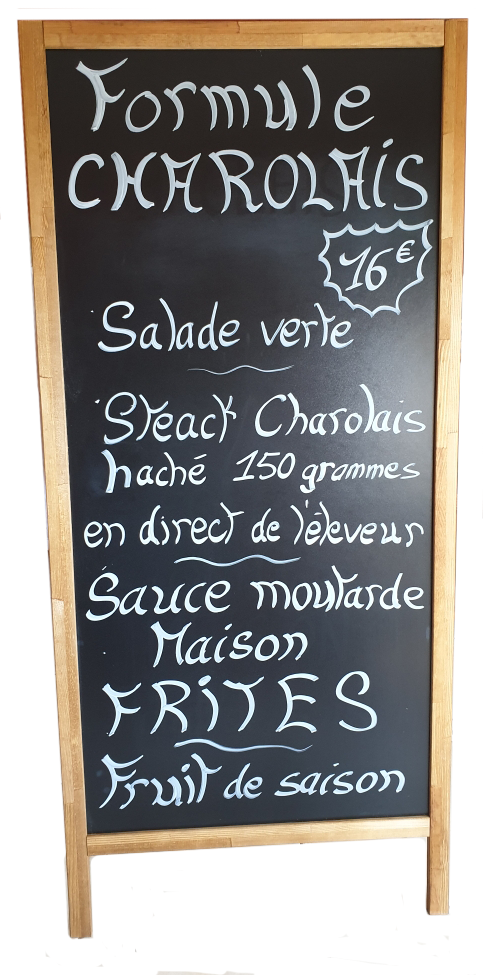 Formule
CHAROLAiS
16€
Salade verte
Steack Charolais
haché 150 grammes
en direct de l'éleveur
Sauce moutarde
Maison
FRiTES
Fruit de saison